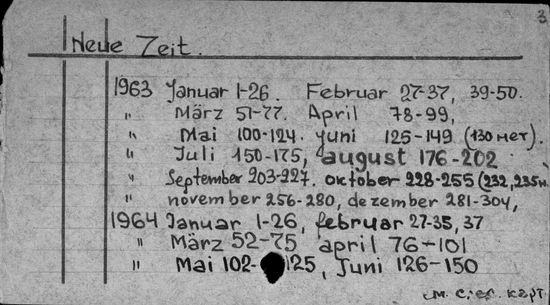 3
Neue Zeit.
1963 Januar 1-26. Februar 27-37, 39-50.
" März 51-77. April 78-99,
" Mai 100-124. yuni 125-149 (130 нет).
" Juli 150-175, august 176-202
" September 203-227. oktober 228-255 (232, 235н
" november 256-280, dezember 281-304,
1964 Januar 1-26, februar 27-35, 37
" März 52-75 april 76-101
" Mai 102- 125, Juni 126-150
см. след. карт.